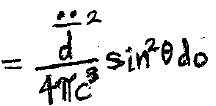 = \frac{\overline{\ddot{d}}^2}{4\pi c^3} sin²θ do